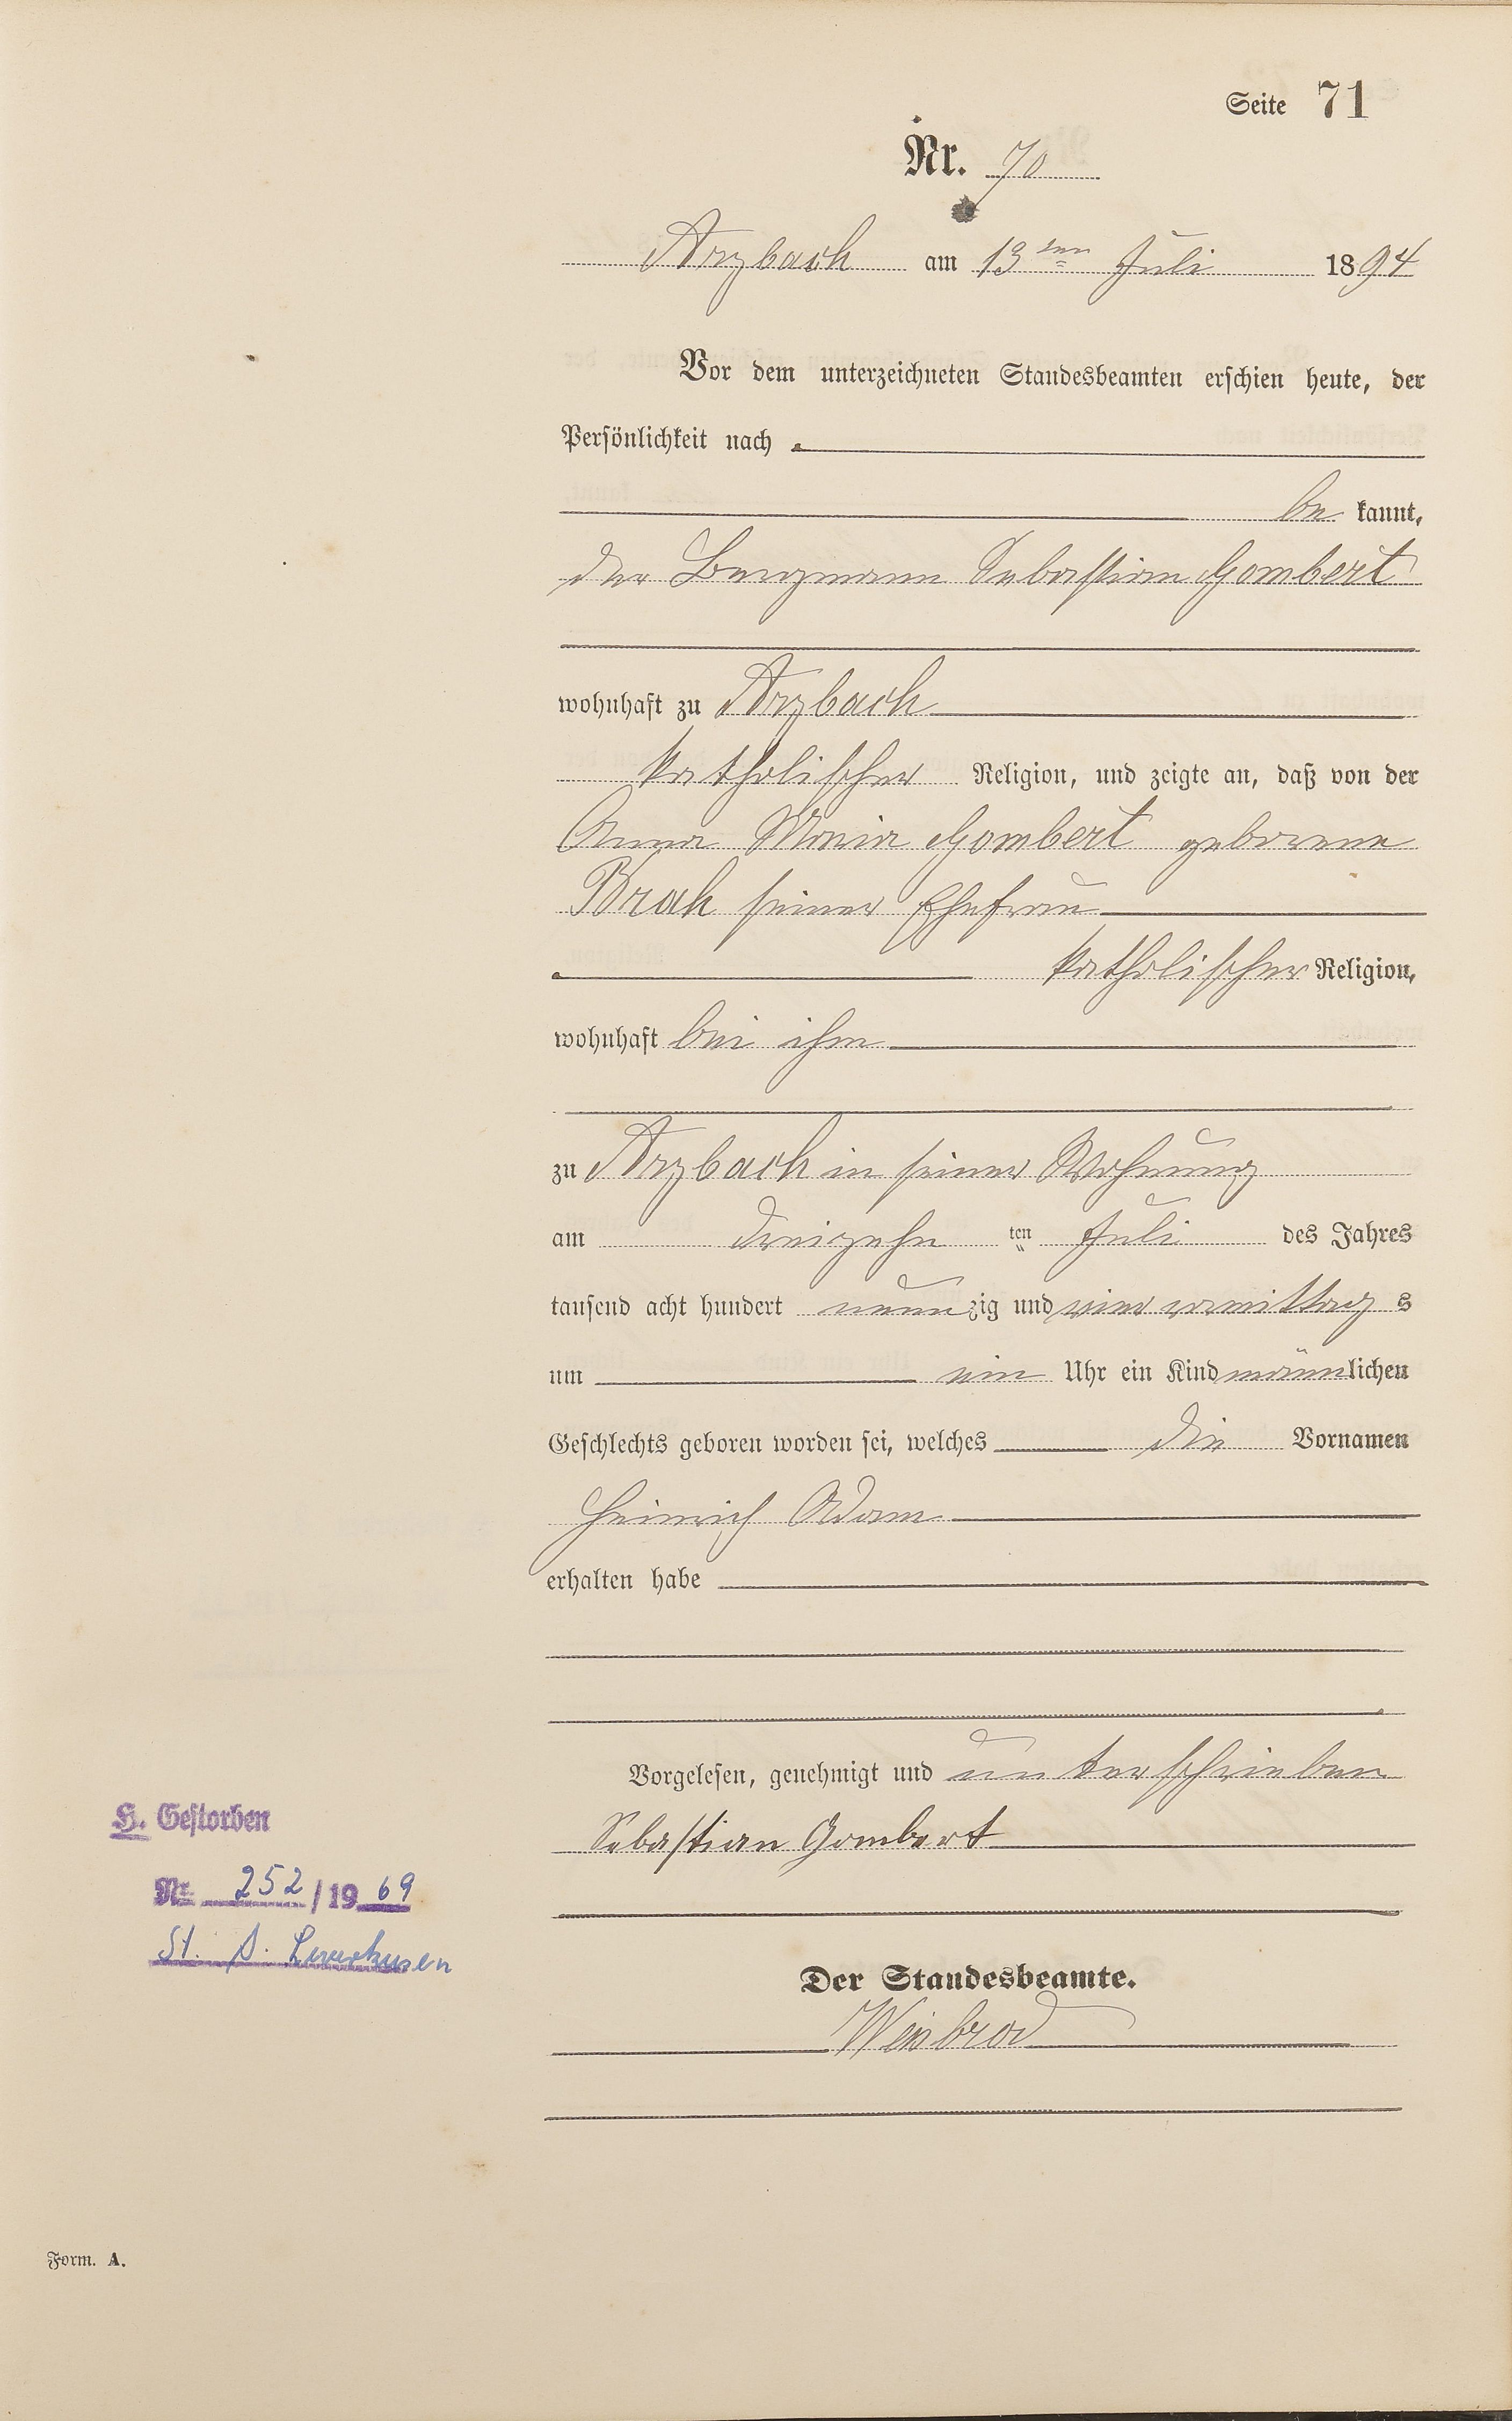 Seite 71
Nr. 70
Arzbach am 13ten Juli 1894
Vor dem unterzeichneten Standesbeamten erschien heute, der
Persönlichkeit nach
be kannt,
der Bergmann Sebastian Gombert
wohnhaft zu Arzbach
katholischer Religion, und zeigte an, daß von der
Anna Maria Gombert geborene
Brah seiner Ehefrau
katholischer Religion,
wohnhaft bei ihm
zu Arzbach in seiner Wohnung
am dreizehn ten Juli des Jahres
tausend acht hundert neunzig und vier vormittags
um ein Uhr ein Kind männlichen
Geschlechts geboren worden sei, welches die Vornamen
Heinrich Adam
erhalten habe
Vorgelesen, genehmigt und unterschrieben
Sebastian Gombert
Der Standesbeamte.
Weisbrod
H. Gestorben
Nr. 252/1969
St. A. Leverkusen
Form. A.